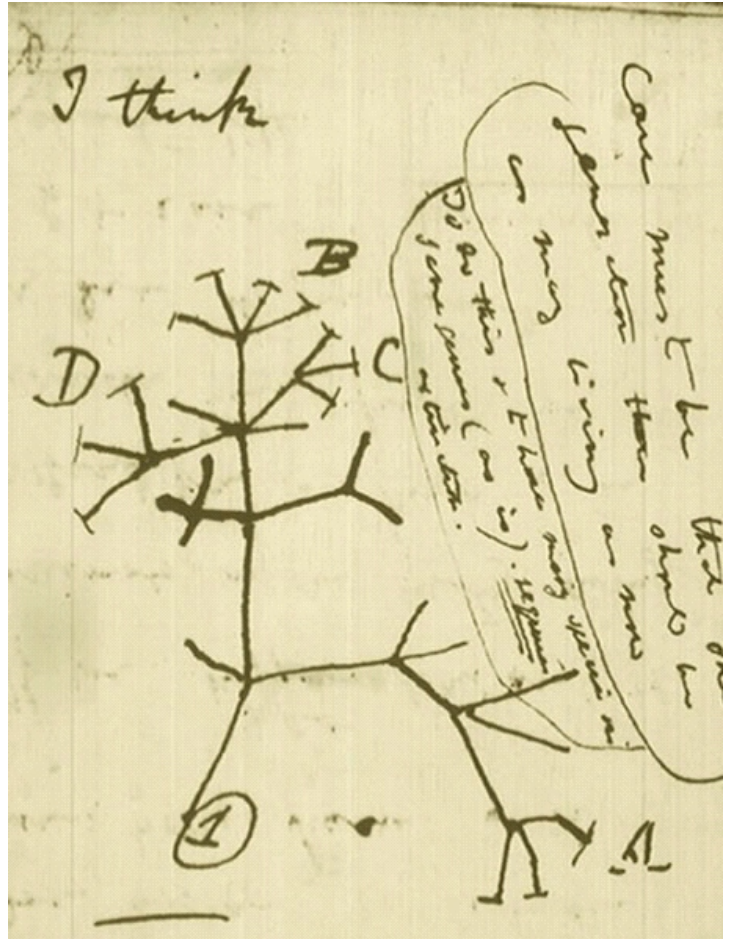 I think
B
D
C
Case must be that one
generation then should be
as many living as now
To do this & to have many species in
same genus (as is). requires
extinction.
A
1